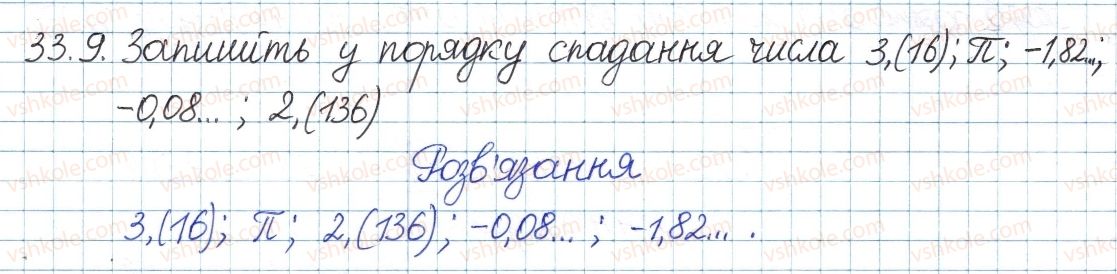 33.9. Запишіть у порядку спадання числа 3,(16); π; -1,82...;
-0,08... ; 2,(136)
Розв'язання
3,(16); π; 2,(136); -0,08... ; -1,82... .